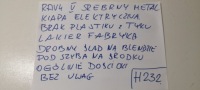 RAV4 V SREBRNY METAL
KLAPA ELEKTRYCZNA
BRAK PLASTIKU Z TYŁU
LAKIER FABRYKA
DROBNY ŚLAD NA BLENDZIE
POD SZYBĄ NA ŚRODKU
OGÓLNIE DOŚĆ OK
BEZ UWAG
H232